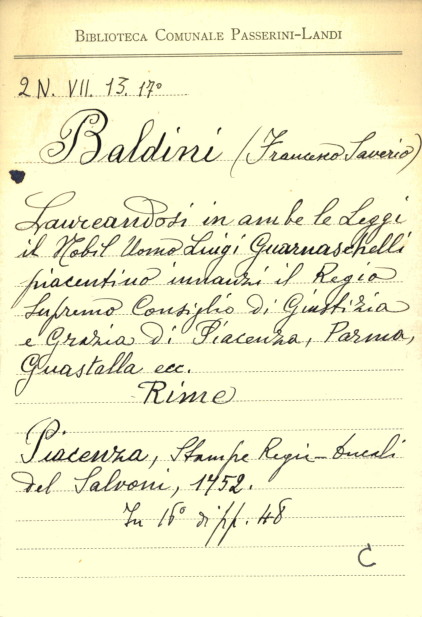 BIBLIOTECA COMUNALE PASSERINI-LANDI
2 N. VII. 13. 17º
Baldini (Francesco Saverio)
Laureandosi in ambe le Leggi
il Nobil Uomo Luigi Guarnaschelli
piacentino innanzi il Regio
Supremo Consiglio di Giustizia
e Grazia di Piacenza, Parma,
Guastalla ecc.
Rime
Piacenza, Stampe Regie-Ducali
del Salvoni, 1752.
In 16º di pp. 48
C